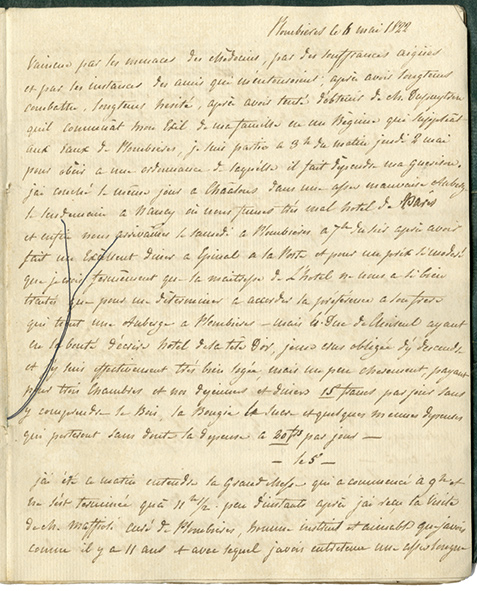 Plombieres le 6 mai 1822
Vaincue par les menaces des medecins, par des souffrances aigües
et par les instances des amis qui m'entouroient, après avoir longtems
combattu, longtems hesité, après avoir tenté d'obtenir de Mr. Dupuytren
qu'il commuat mon Exil de ma famille en un Regime qui suppléat
aux Eaux de Plombieres, je suis partie a 3h du matin jeudi 2 mai
pour obeir a une ordonnance de laquelle il fait dependre ma Guerison.
j'ai couché le même jour a Chaalons dans une assez mauvaise Auberge
le lendemain a Nancy où nous fumes très mal hotel de
et enfin nous arrivâmes le samedi a Plombieres a 7h du soir après avoir
fait un Excellent diner a Epinal a la Poste et pour un prix si modesté
que je crois fermement que la maitresse de L'hotel ne nous a si bien
traités que pour me déterminer a accorder la préference a son frere
qui tient une Auberge a Plombieres — mais le Duc de Choiseul ayant
eu la bonté d'écrire hotel de la tête d'or, je me crus obligée d'y descendre
et j'y suis effectivement très bien logée mais un peu cherement, payant
pour trois chambres et nos dejeuners et diners 15 francs par jour sans
y comprendre le Bois, la Bougie le sucre et quelques menues depenses
qui porteront sans doute la depense a 20 frs par jour —
— le 5 —
j'ai été ce matin entendre la Grand Messe qui a commencé a 9h et
ne s'est terminée qu'à 11 h 1/2. peu d'instants après j'ai reçu la visite
de Mr. curé de Plombieres, homme instruit et aimable que j'avois
connu il y a 11 ans et avec lequel j'avois entretenu une assez longue